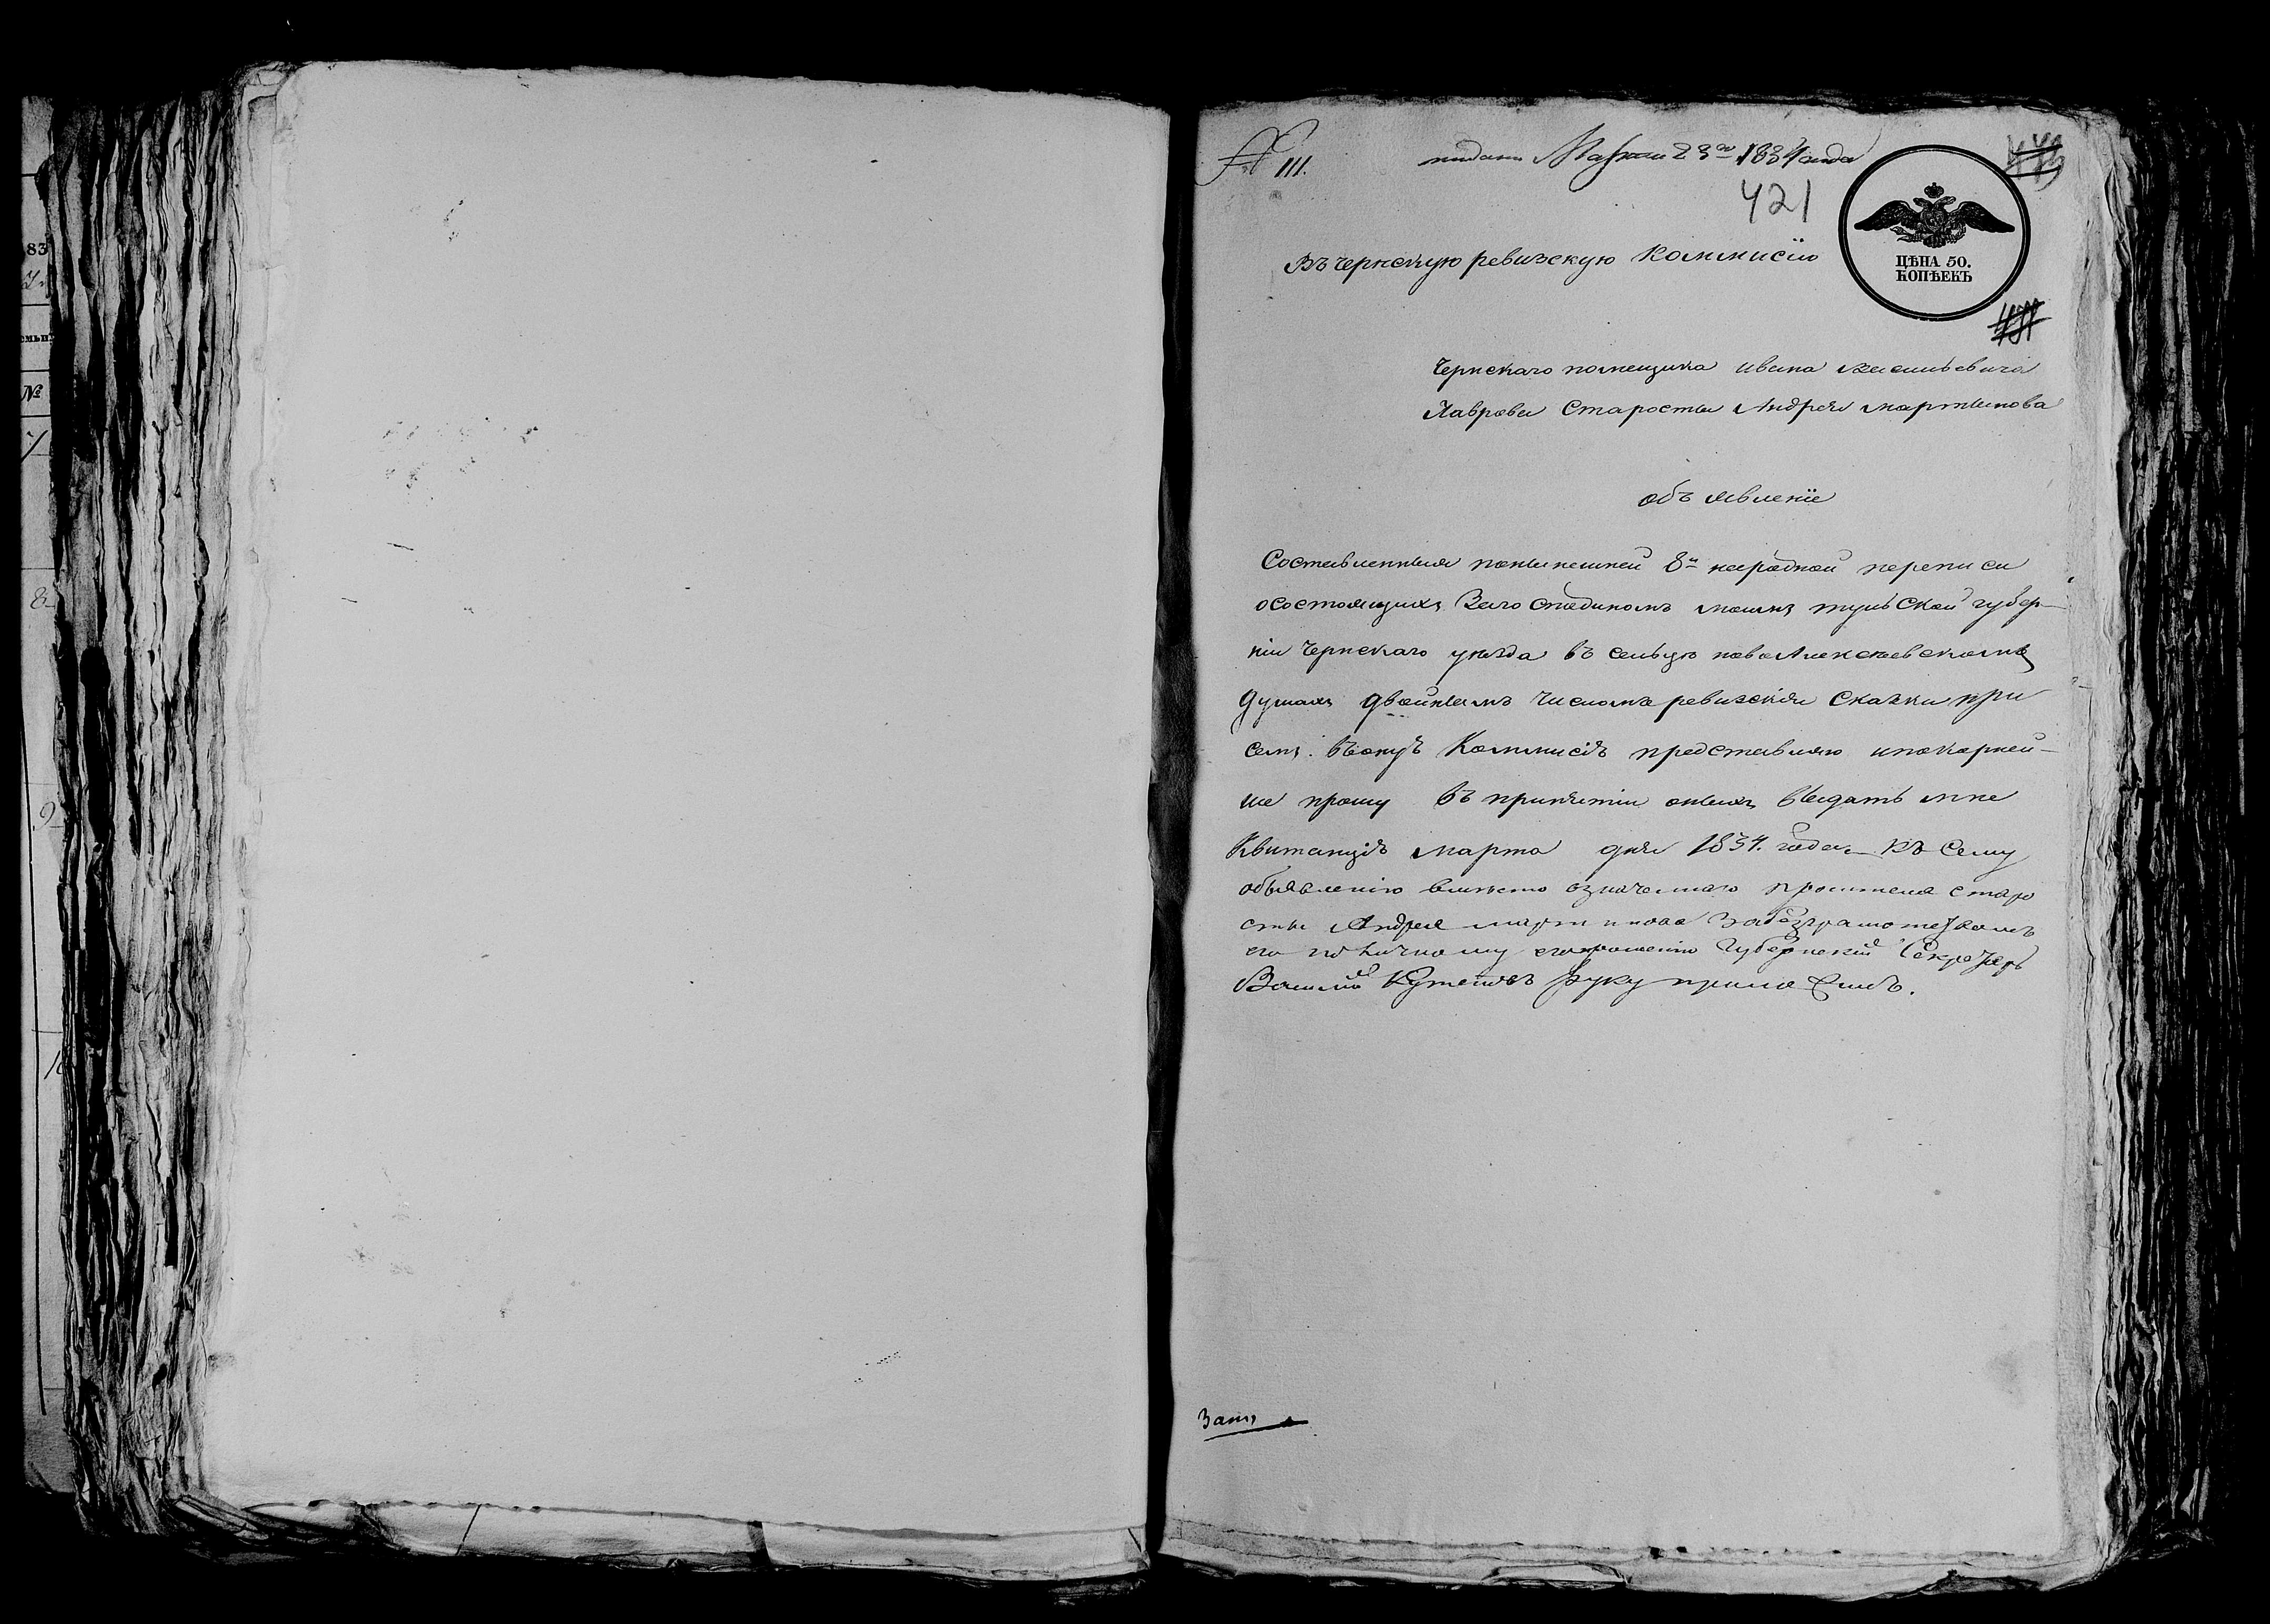 83
№
7
8
9
№ 111.
подано Марта 23го 1834 года
421
ЦѢНА 50.
КОПѢЕКЪ
Въ чернскую ревизскую коммисїю
Чернскаго помещика ивана васильевича
Лаврова Старосты Андрея мартынова
объ явленїе
Составленныя понынешней 8й народной переписи
осостоящихъ Зато Тульской губер-
нїи Чернскаго уѣзда въ сельцѣ новоАлексѣевскомъ
душахъ двойнымъ числомъ ревизскїя Сказки при
семъ въонуъ Коммисїъ представляю ипокорней-
ше прошу въ принятїи оныхъ выдать мне
Квитанцїъ марта дня 1834. года. Къ Сему
объявленїю вместо означеннаго просителя старо
сты Андрея мартинова забезграмотством
его по личному его прошению Губернский Секретарь
Василий руку приложилъ.